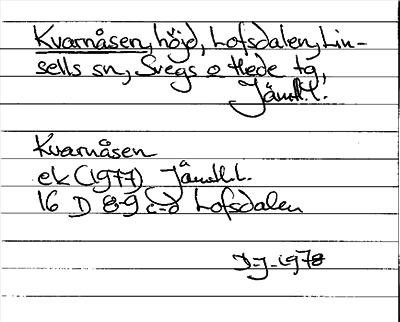 Kvarnåsen, höjd, Lofsdalen, Lin-
sells sn, Svegs o Hede tg,
Jämtl.l.
Kvarnåsen
ek (1977) Jämtl.l.
16 D 8-9 c-d Lofsdalen
1978